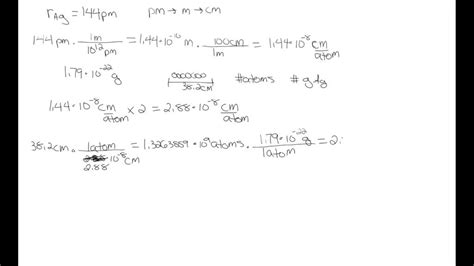 r_Ag = 144pm   pm → m → cm
144 pm · 1m / 10^12 pm = 1.44·10^-10 m · 100cm / 1m = 1.44·10^-8 cm / atom
1.79·10^-22 g   38.2cm   #atoms   # g Ag
1.44·10^-8 cm / atom × 2 = 2.88·10^-8 cm / atom
38.2cm · 1atom / 2.88 10^-8 cm = 1.3263889·10^9 atoms · 1.79·10^-22 g / 1atom = 2.